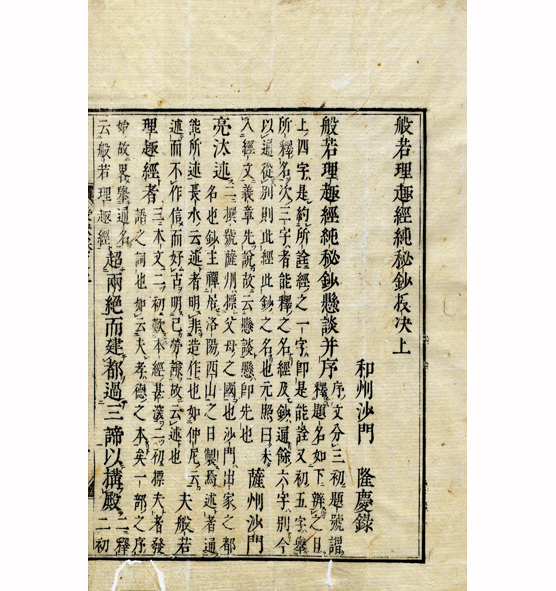 般若理趣經純秘鈔披决上
和州沙門 隆慶錄
般若理趣經純秘鈔懸談并序 序文分三初題號謂
釋題名如下辨之目
上四字是約所詮經之一字即是能詮又初五字舉
所釋名次三字者能釋之名經及鈔通餘六字別今
以通從別則此經此鈔之名也元照曰未
入經文義章先說故云懸談懸即先也 薩州沙門
亮汰述 二撰號薩州標父母之國也沙門出家之都
名也鈔主禪居洛陽西山之日製焉述者通
能所述長水云述者明非造作也如仲尼云
述而不作信而好古明己勞謙故云述也 夫般若
理趣經者 三本文二初歎本經甚深二初標夫者發
語之詞也如云夫孝德之本矣一部之序
始故畧舉通名 超兩絕而建都過三諦以構殿 二釋
云般若理趣經 二初